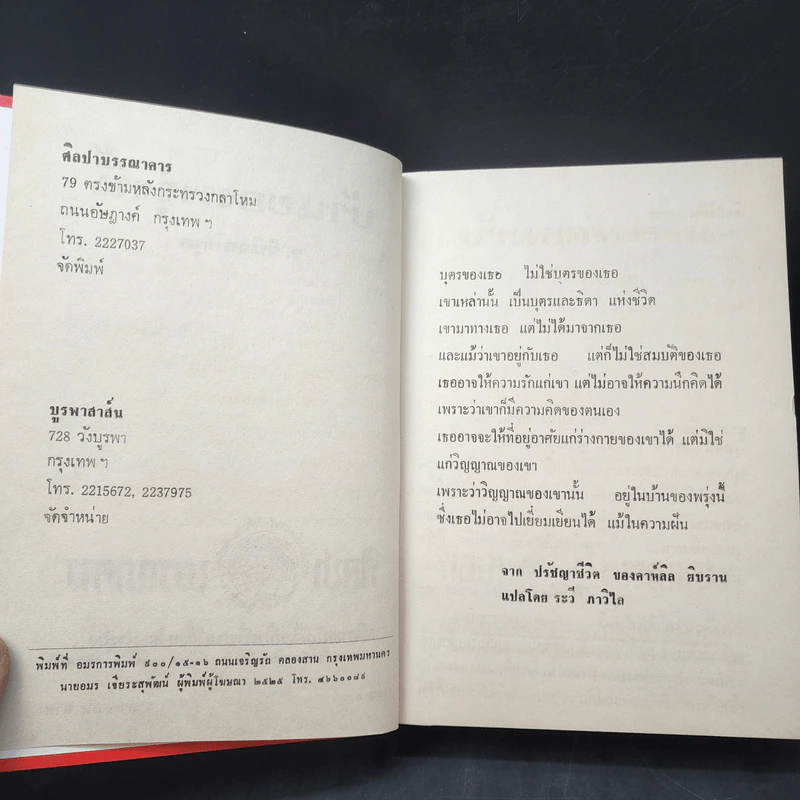 ศิลปาบรรณาคาร
79 ตรงข้ามหลังกระทรวงกลาโหม
ถนนอัษฎางค์ กรุงเทพ ฯ
โทร. 2227037
จัดพิมพ์
บูรพาสาส์น
728 วังบูรพา
กรุงเทพ ฯ
โทร. 2215672, 2237975
จัดจำหน่าย
พิมพ์ที่ อมรการพิมพ์ ๙๐๐/๑๕-๑๖ ถนนเจริญรัถ คลองสาน กรุงเทพมหานคร
นายอมร เจียระสุพัฒน์ ผู้พิมพ์ผู้โฆษณา ๒๕๒๕ โทร. ๔๖๖๐๐๘๙
บุตรของเธอ ไม่ใช่บุตรของเธอ
เขาเหล่านั้น เป็นบุตรและธิดา แห่งชีวิต
เขามาทางเธอ แต่ไม่ได้มาจากเธอ
และแม้ว่าเขาอยู่กับเธอ แต่ก็ไม่ใช่สมบัติของเธอ
เธออาจให้ความรักแก่เขา แต่ไม่อาจให้ความนึกคิดได้
เพราะว่าเขาก็มีความคิดของตนเอง
เธออาจจะให้ที่อยู่อาศัยแก่ร่างกายของเขาได้ แต่มิใช่
แก่วิญญาณของเขา
เพราะว่าวิญญาณของเขานั้น อยู่ในบ้านของพรุ่งนี้
ซึ่งเธอไม่อาจไปเยี่ยมเยียนได้ แม้ในความฝัน
จาก ปรัชญาชีวิต ของคาห์ลิล ยิบราน
แปลโดย ระวี ภาวิไล